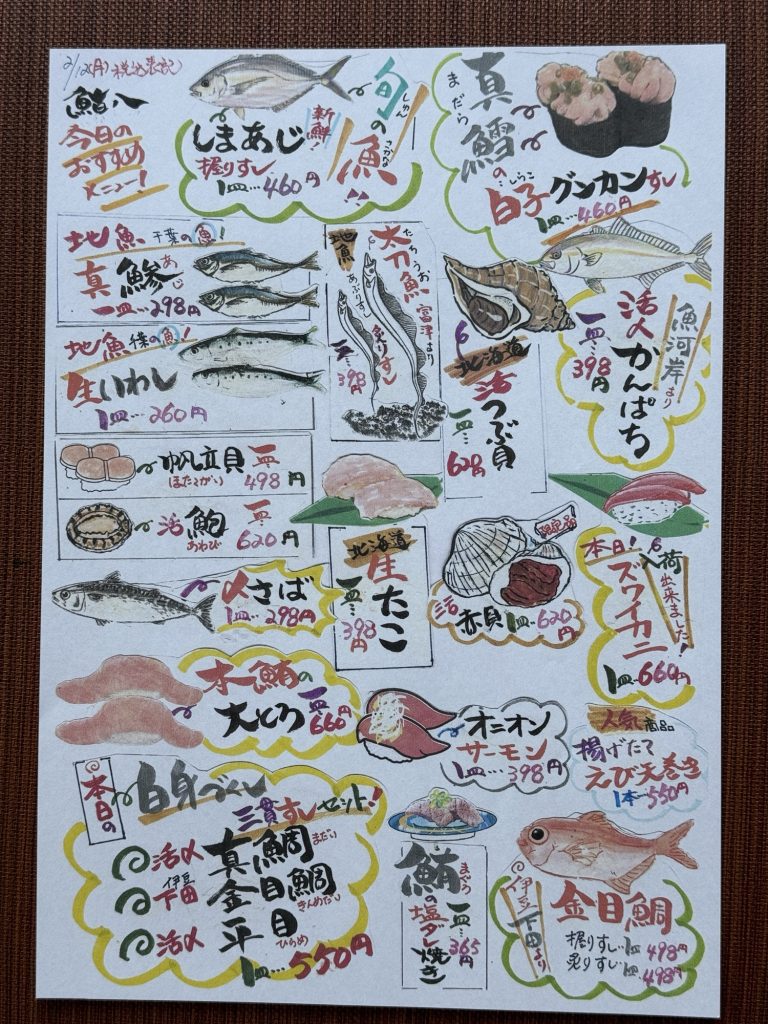 2/12(月)税込表記
鮨八
今日の
おすすめ
メニュー!
旬の魚!!
しゅん
さかな
新鮮!
しまあじ
握りすし
1皿…460円
まだら
真鱈の
しらこ
白子グンカンすし
1皿…460円
地魚 千葉の魚!
真鯵
あじ
一皿…298円
地魚 千葉の魚!
生いわし
1皿…260円
地魚
太刀魚
たちうお
富津より
あぶりすし
炙りすし
一皿…398円
北海道
活つぶ貝
一皿…620円
魚河岸より
活〆かんぱち
一皿…398円
帆立貝
ほたてがい
一皿…498円
活鮑
あわび
一皿…620円
〆さば
1皿…298円
北海道
生たこ
一皿…398円
限定品
活赤貝 1皿…620円
本日!入荷出来ました!
ズワイカニ
1皿…660円
本鮪の
大とろ
一皿660円
オニオン
サーモン
1皿…398円
人気商品
揚げたて
えび天巻き
1本…550円
本日の
白身づくし
三貫すしセット!
活〆真鯛
まだい
伊豆
下田金目鯛
きんめだい
活〆平目
ひらめ
1皿…550円
鮪の塩ダレ焼き
まぐろ
一皿…365円
伊豆下田より
金目鯛
握りすし…1皿498円
炙りすし…1皿498円